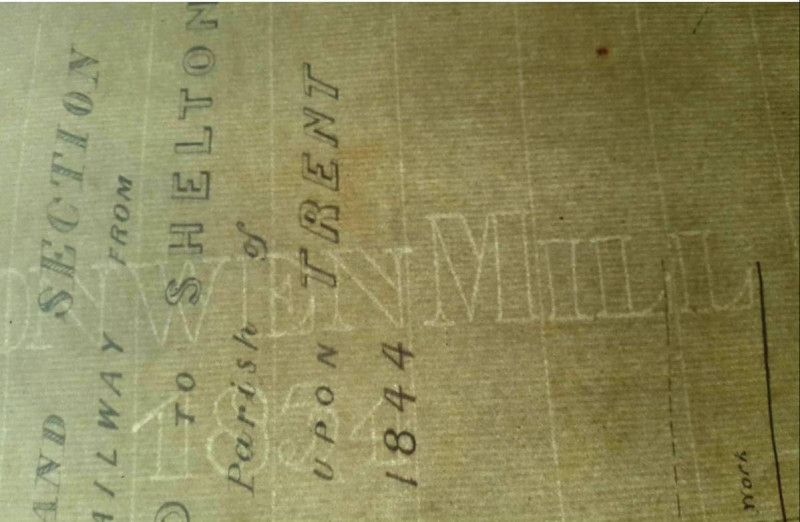 AND SECTION
AILWAY FROM
TO SHELTON
Parish of
UPON TRENT
1844
ONWEN MILL